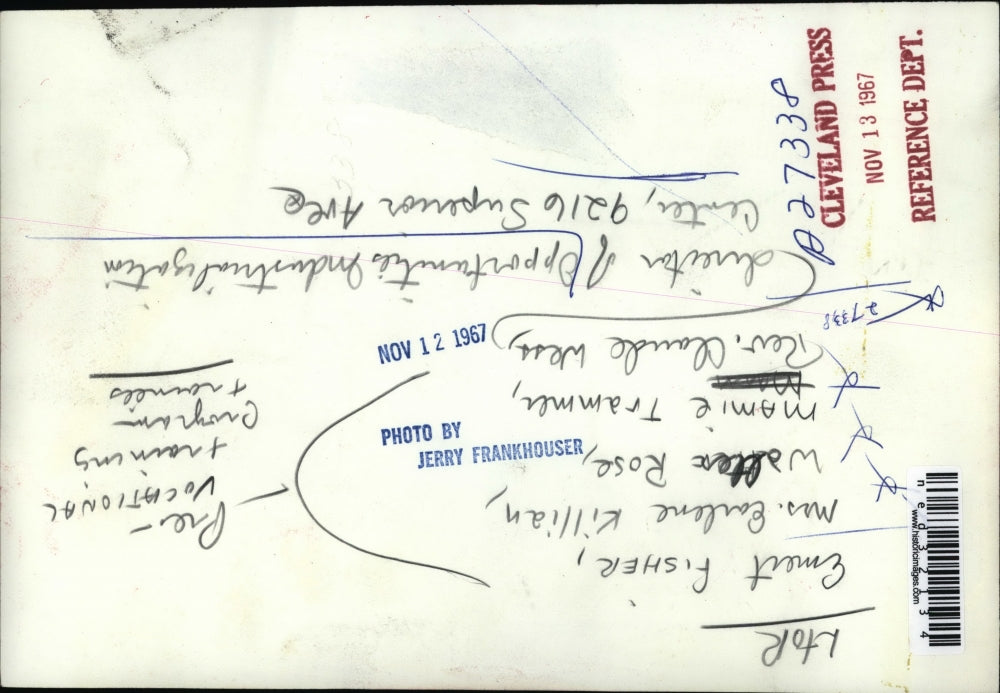 LtoR
Ernest FISHER,
Mrs. Earlene Killian,
Walter Rose,
MAMIE Trammer,
Rev. Claude Wess,
director of Opportunities Industrialization
Center, 9216 Superior Ave
Pre-
VOCATIONAL
training
Program
trainees
NOV 12 1967
PHOTO BY
JERRY FRANKHOUSER
A27338
27338
CLEVELAND PRESS
NOV 13 1967
REFERENCE DEPT.
www.historicimages.com
ned32134